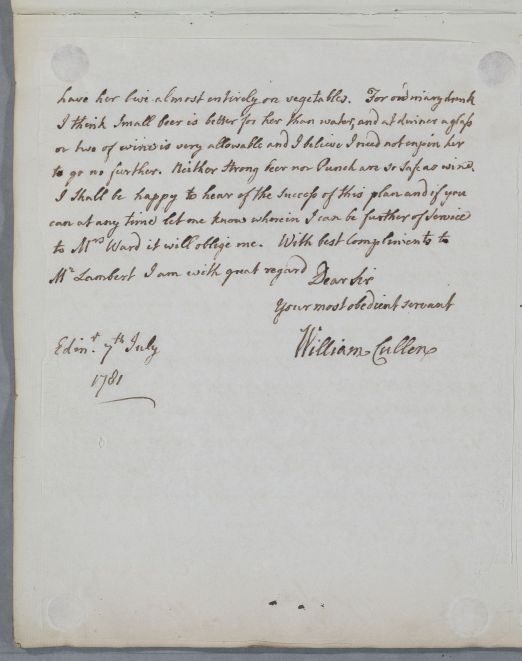 have her live almost entirely on vegetables. For ordinary drink
I think Small beer is better for her than water, and at dinner a glass
or two of wine is very allowable and I believe I need not enjoin her
to go no further. Neither strong beer nor Punch are so safe as wine.
I shall be happy to hear of the success of this plan and if you
can at any time let me know wherein I can be further of Service
to Mrs Ward it will oblige me. With best Compliments to
Mr Lambert I am with great regard Dear Sir
Your most obedient servant
William Cullen
Edinr. 7th July
1781